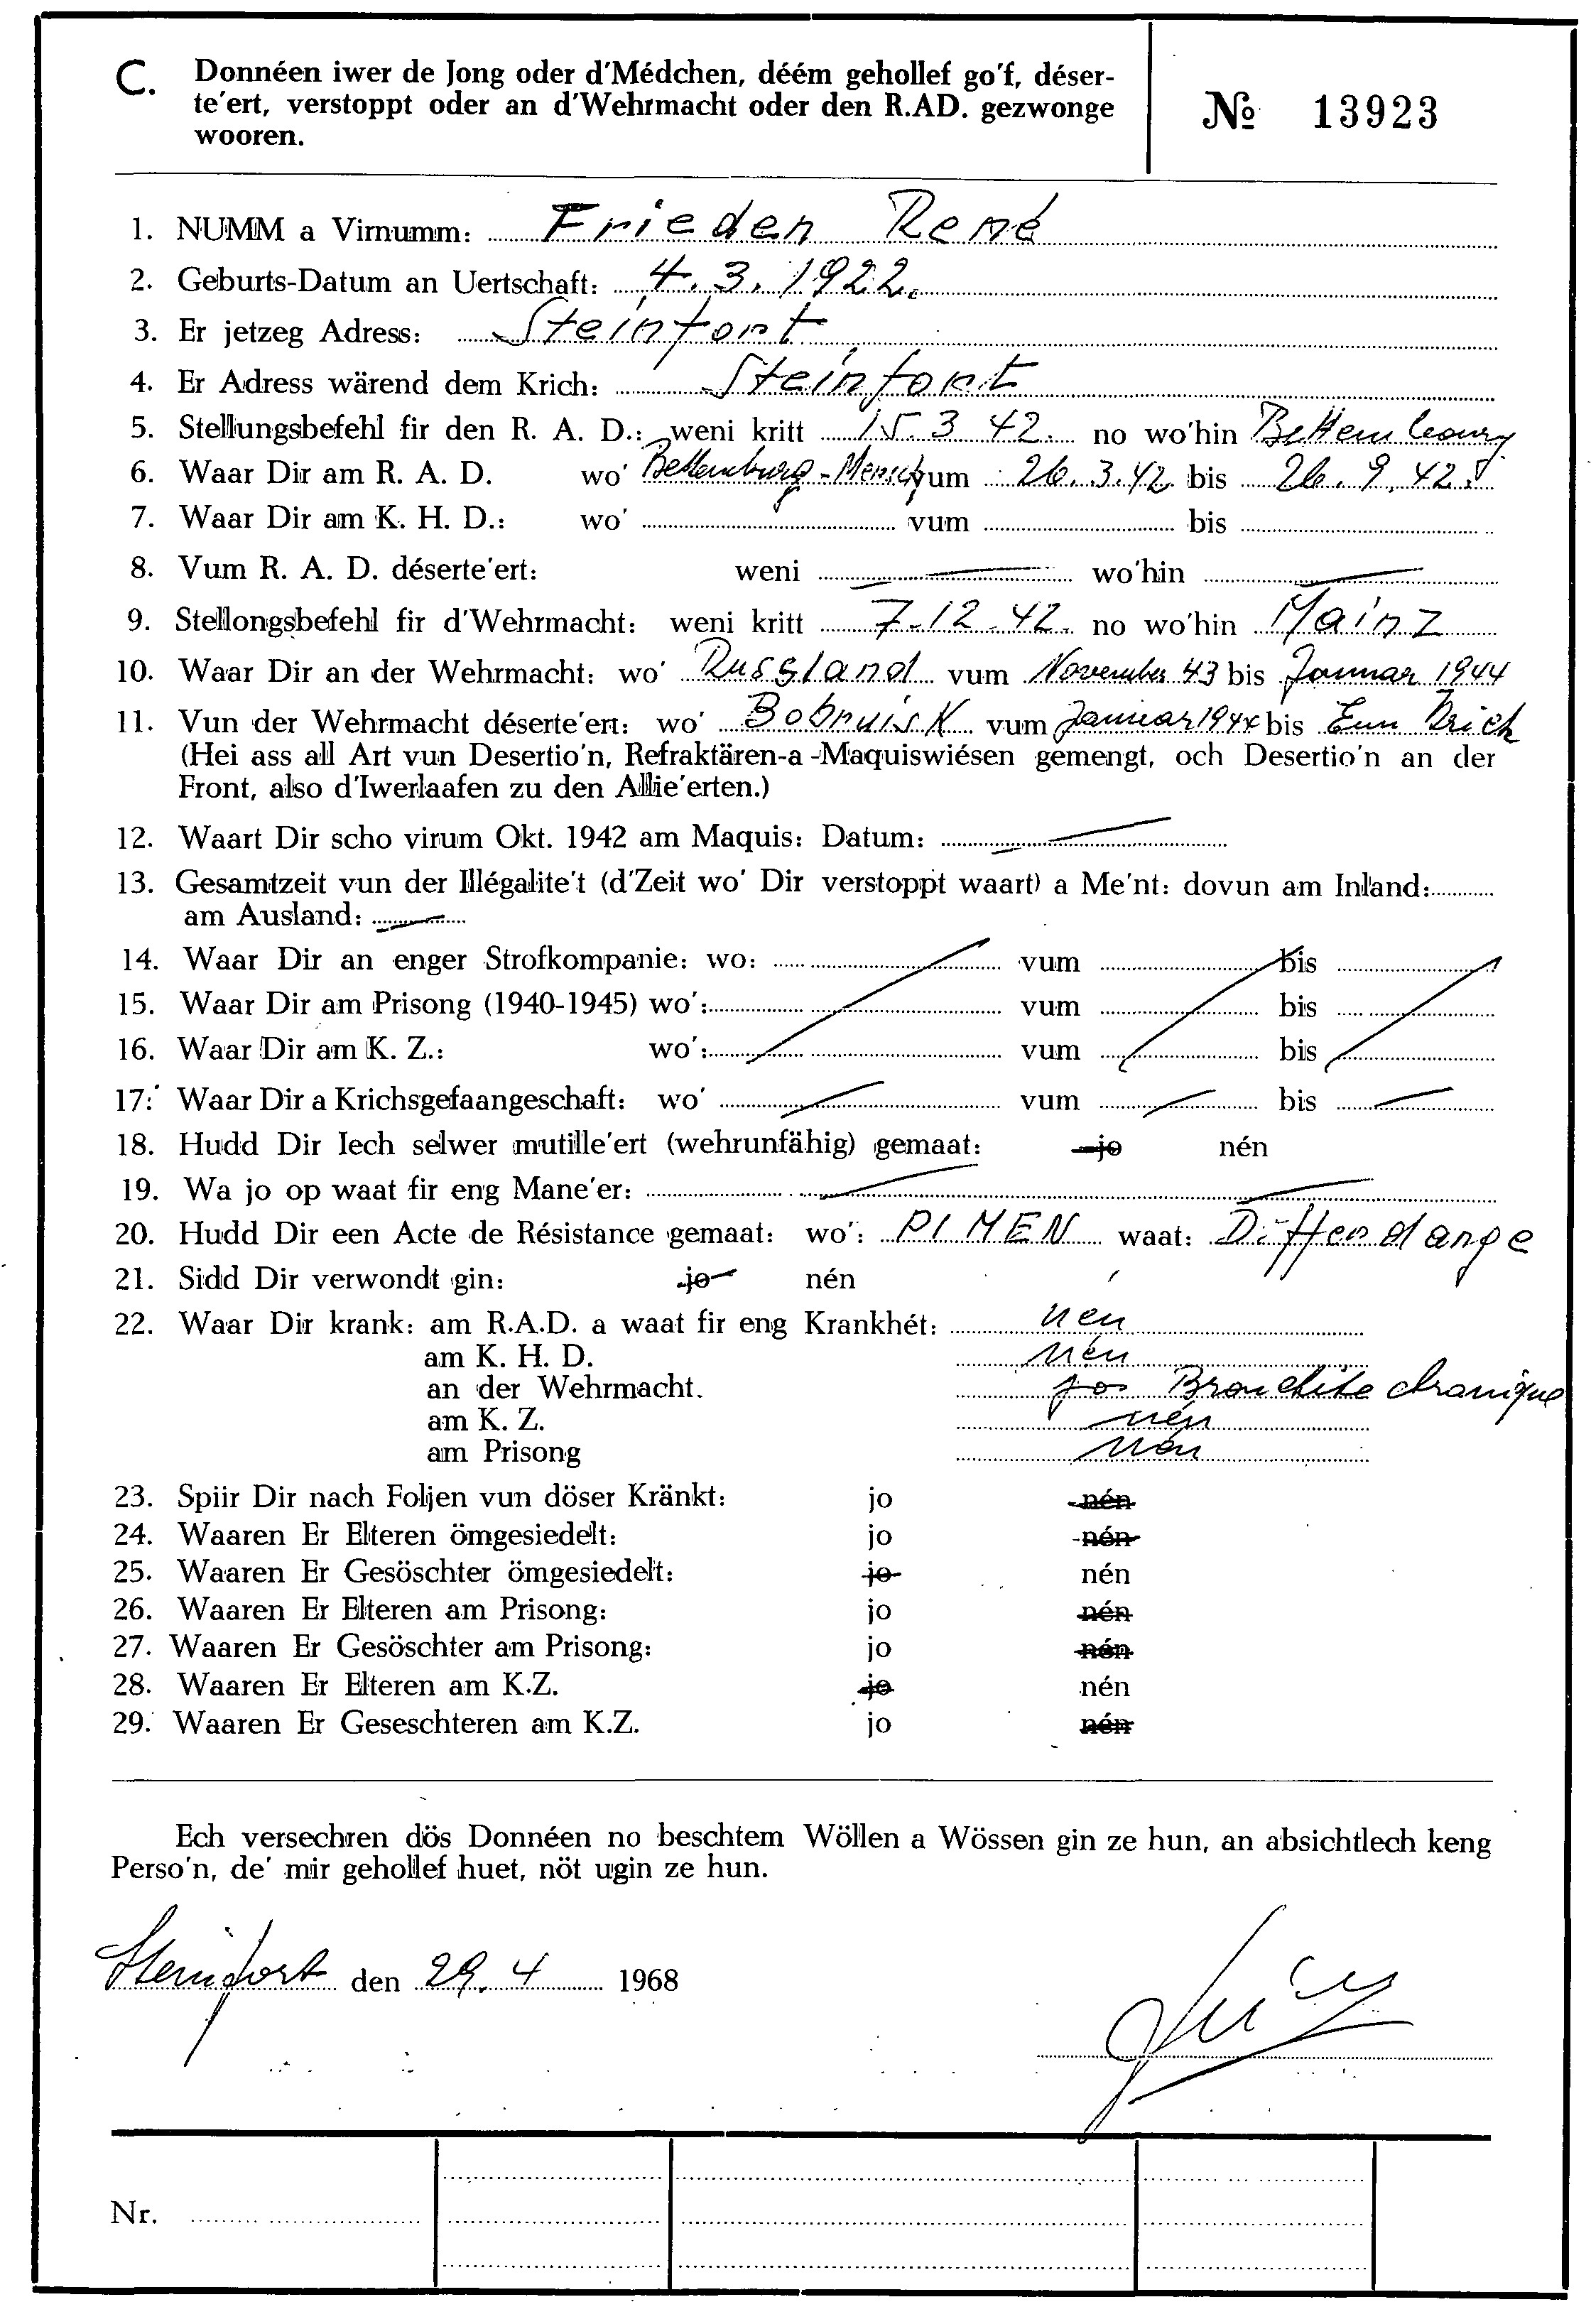 C. Donnéen iwer de Jong oder d'Médchen, déém gehollef go'f, déser-
te'ert, verstoppt oder an d'Wehrmacht oder den R.AD. gezwonge
wooren.
№ 13923
1. NUMM a Virnumm: Frieden René
2. Geburts-Datum an Uertschaft: 4.3.1922.
3. Er jetzeg Adress: Steinfort
4. Er Adress wärend dem Krich: Steinfort
5. Stellungsbefehl fir den R. A. D.: weni kritt 15.3 42. no wo'hin Bettembourg
6. Waar Dir am R. A. D. wo' Bettemburg - vum 26.3.42 bis 26.9.42.
7. Waar Dir am K. H. D.: wo' vum bis
8. Vum R. A. D. déserte'ert: weni — wo'hin —
9. Stellongsbefehl fir d'Wehrmacht: weni kritt 7.12.42. no wo'hin Mainz
10. Waar Dir an der Wehrmacht: wo' Russland vum November 43 bis Januar 1944
11. Vun der Wehrmacht déserte'ert: wo' Bobruisk vum Januar 1944 bis Enn Krich
(Hei ass all Art vun Desertio'n, Refraktären-a-Maquiswiésen gemengt, och Desertio'n an der
Front, also d'Iwerlaafen zu den Allie'erten.)
12. Waart Dir scho virum Okt. 1942 am Maquis: Datum: —
13. Gesamtzeit vun der Illégalite't (d'Zeit wo' Dir verstoppt waart) a Me'nt: dovun am Inland:
am Ausland: —
14. Waar Dir an enger Strofkompanie: wo: vum bis
15. Waar Dir am Prisong (1940-1945) wo': vum bis
16. Waar Dir am K. Z.: wo': vum bis
17. Waar Dir a Krichsgefaangeschaft: wo' — vum — bis —
18. Hudd Dir Iech selwer mutille'ert (wehrunfähig) gemaat: jo nén
19. Wa jo op waat fir eng Mane'er: — —
20. Hudd Dir een Acte de Résistance gemaat: wo': PIMEN waat: Differdange
21. Sidd Dir verwondt gin: jo nén
22. Waar Dir krank: am R.A.D. a waat fir eng Krankhét: nén
am K. H. D. nén
an der Wehrmacht. jo Bronchite chronique
am K. Z. nén
am Prisong nén
23. Spiir Dir nach Foljen vun döser Kränkt: jo nén
24. Waaren Er Elteren ömgesiedelt: jo nén
25. Waaren Er Gesöschter ömgesiedelt: jo nén
26. Waaren Er Elteren am Prisong: jo nén
27. Waaren Er Gesöschter am Prisong: jo nén
28. Waaren Er Elteren am K.Z. jo nén
29. Waaren Er Geseschteren am K.Z. jo nén
Ech versechren dös Donnéen no beschtem Wöllen a Wössen gin ze hun, an absichtlech keng
Perso'n, de' mir gehollef huet, nöt ugin ze hun.
Steinfort den 29.4 1968
Nr.